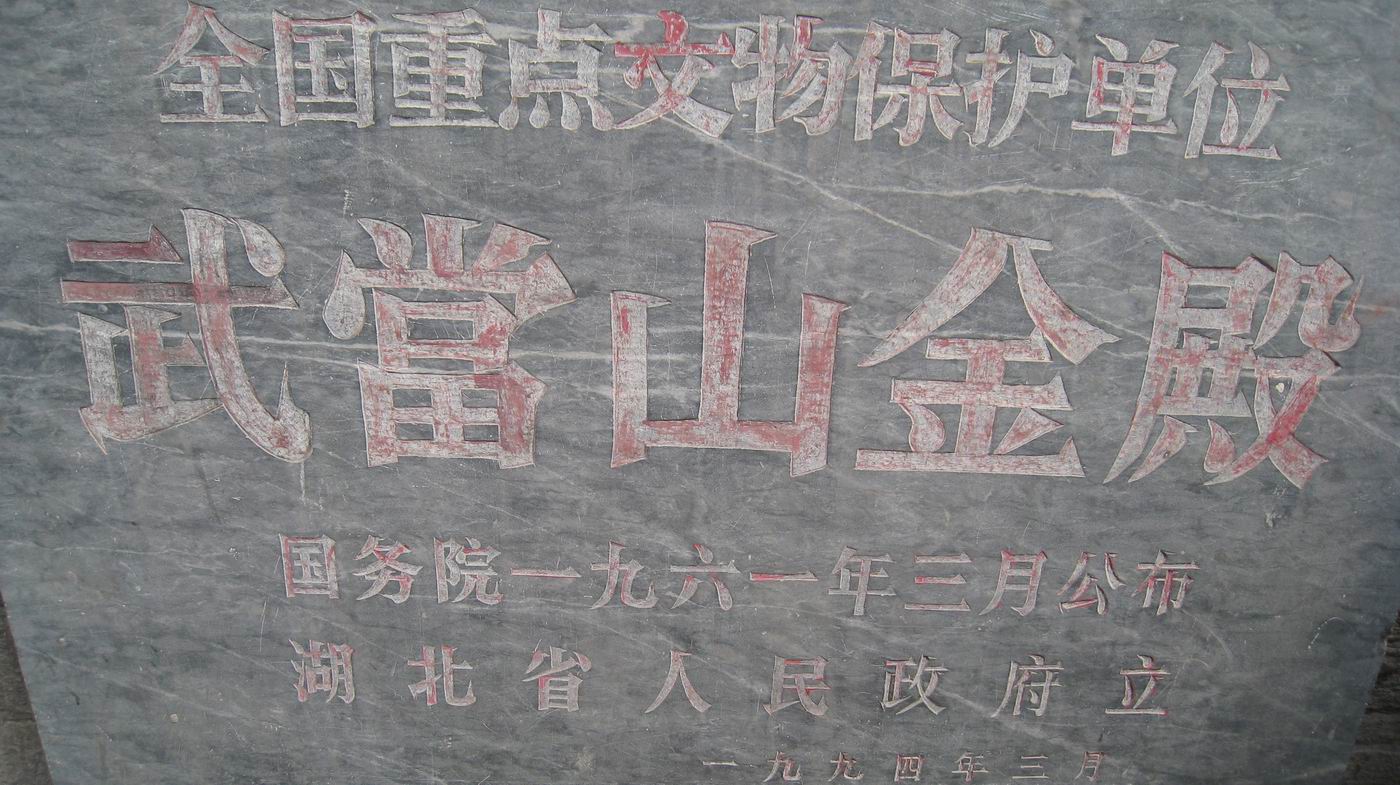 全国重点文物保护单位
武當山金殿
国务院一九六一年三月公布
湖北省人民政府立
一九九四年三月